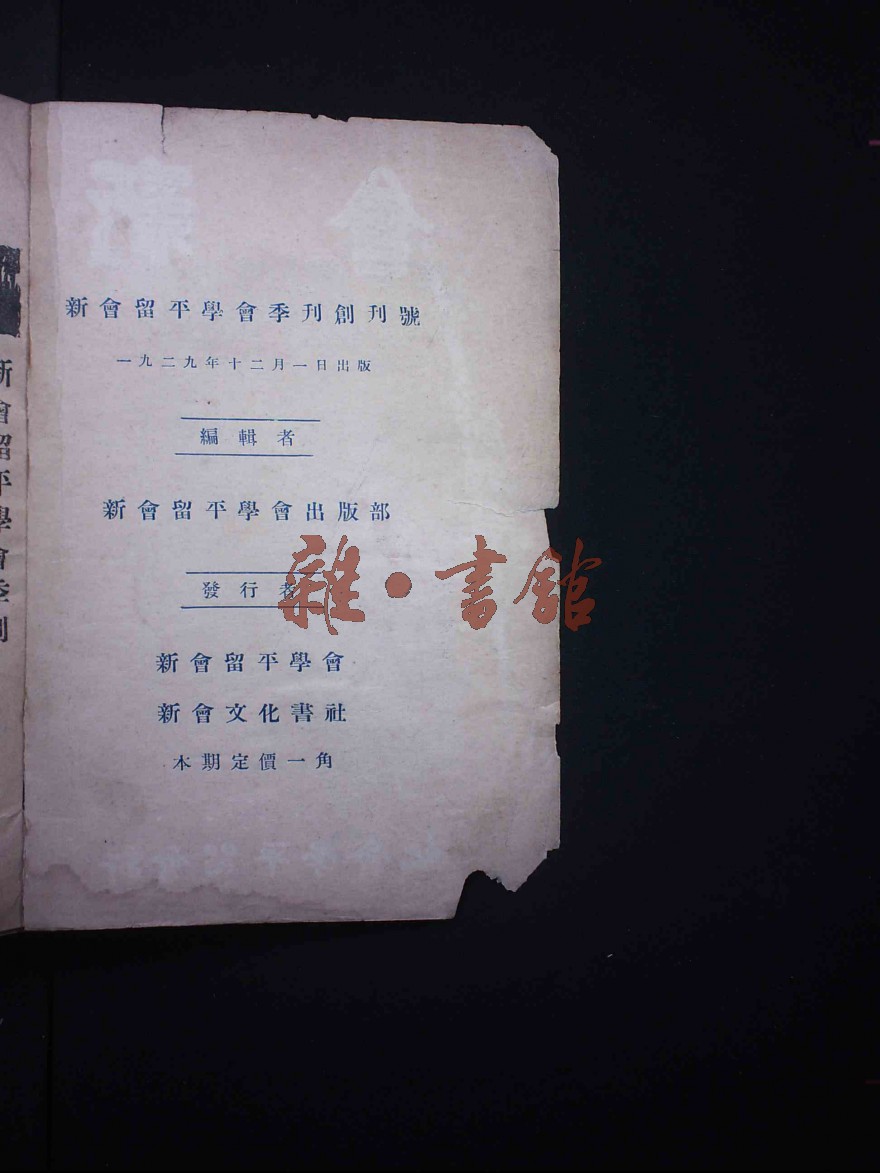 新會留平學會季刊創刊號
一九二九年十二月一日出版
編輯者
新會留平學會出版部
發行者
新會留平學會
新會文化書社
本期定價一角
雜・書館
新會留平學會季刊